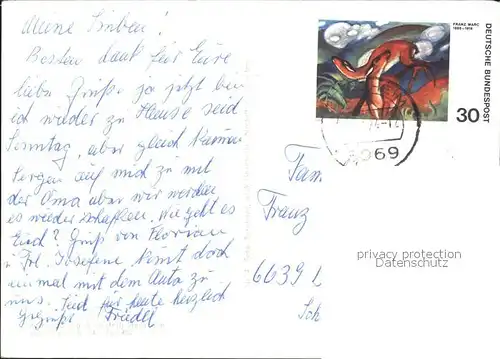 Meine Lieben!
Besten Dank für Eure
liebe Grüße ja jetzt bin
ich wieder zu Hause seid
Sonntag, aber gleich kamen
Sorgen auf mich zu mit
der Oma aber wir werden
es wieder schaffen. Wie geht es
Euch? Gruß von Florian
u. Frl. Josefine kommt doch
einmal mit dem Auto zu
uns. Seid für heute herzlich
gegrüßt Friedel
FRANZ MARC
1880-1916
DEUTSCHE BUNDESPOST
30
8069
Fam
Franz
6639
Sch
privacy protection
Datenschutz